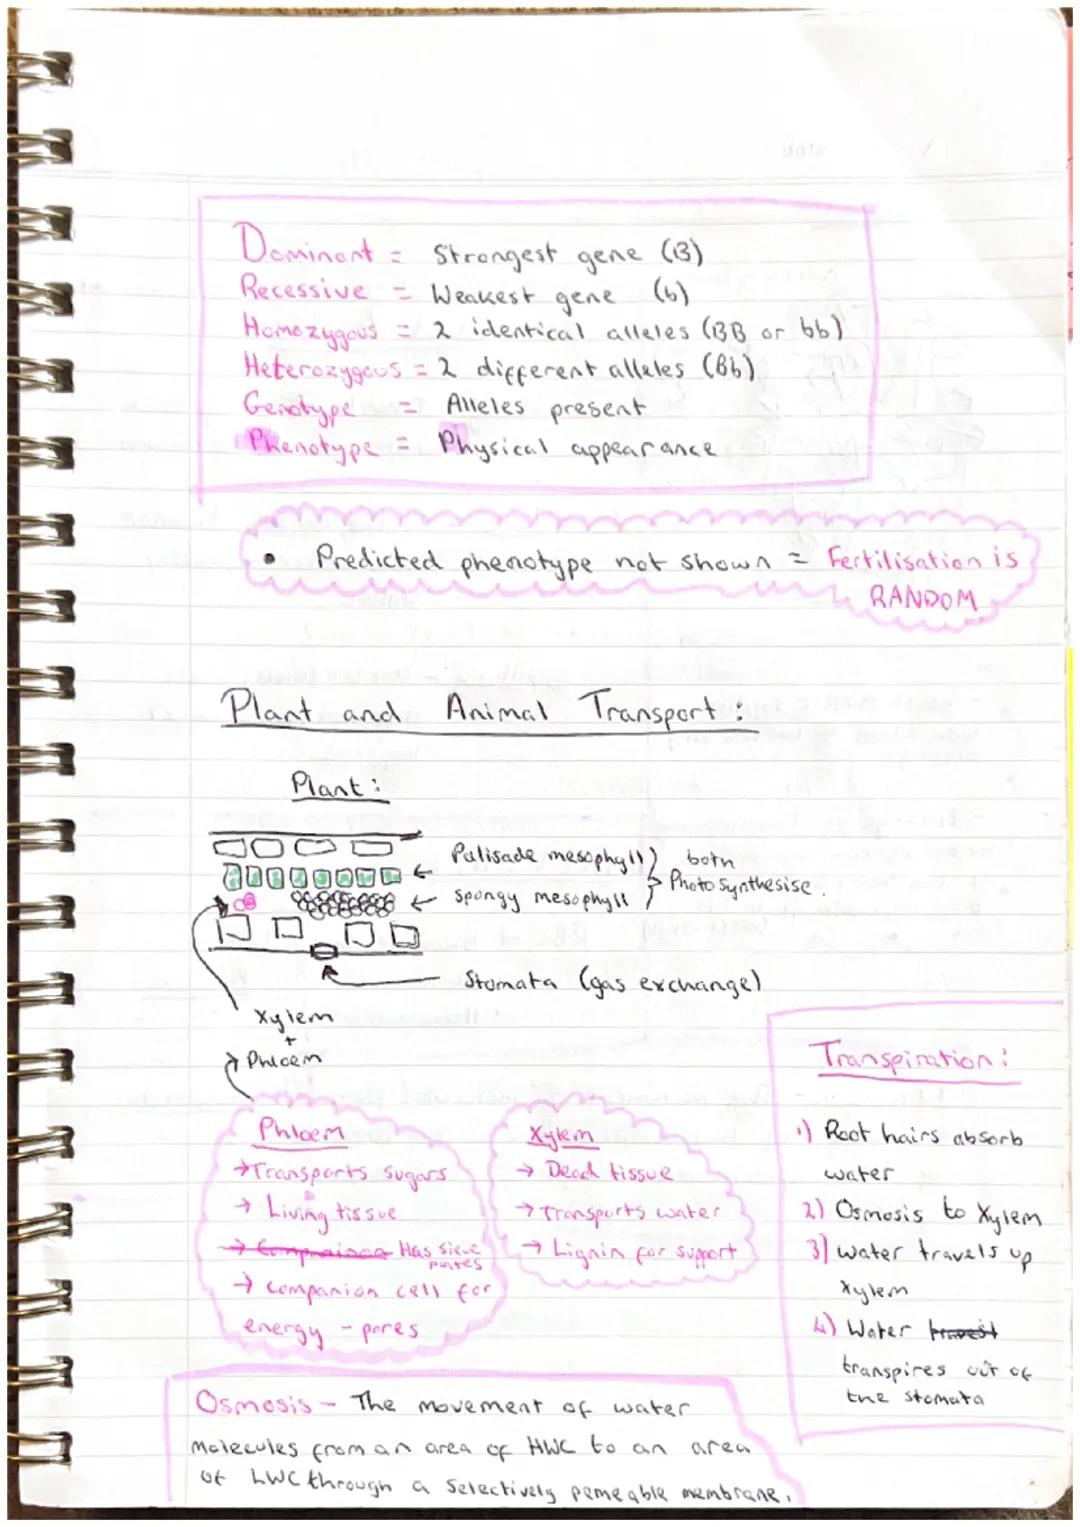 Dominant = Strongest gene (B)
Recessive = Weakest gene (b)
Homozygous = 2 identical alleles (BB or bb)
Heterozygous = 2 different alleles (Bb)
Genotype = Alleles present
Phenotype = Physical appearance
• Predicted phenotype not shown = Fertilisation is
RANDOM
Plant and Animal Transport:
Plant:
Palisade mesophyll } both
spongy mesophyll } Photosynthesise.
Stomata (gas exchange)
Xylem
+
Phloem
Phloem
→ Transports sugars
→ Living tissue
→ Has sieve
plates
→ Companion cell for
energy - pores
Xylem
→ Dead tissue
→ Transports water
→ Lignin for support
Transpiration:
1) Root hairs absorb
water
2) Osmosis to Xylem
3) Water travels up
xylem
4) Water
transpires out of
the stomata
Osmosis - The movement of water
molecules from an area of HWC to an area
of LWC through a selectively pemeable membrane.